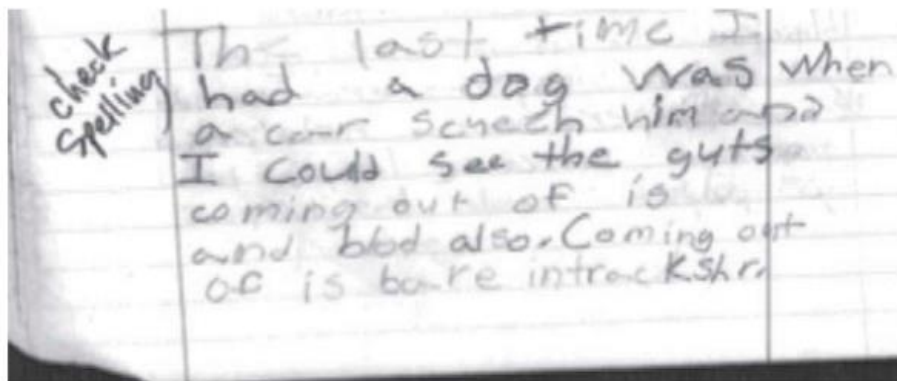 check
spelling
The last time I
had a dog was when
a car scnech him and
I could see the guts
coming out of is
and blod also. Coming out
of is bare intrackshr.